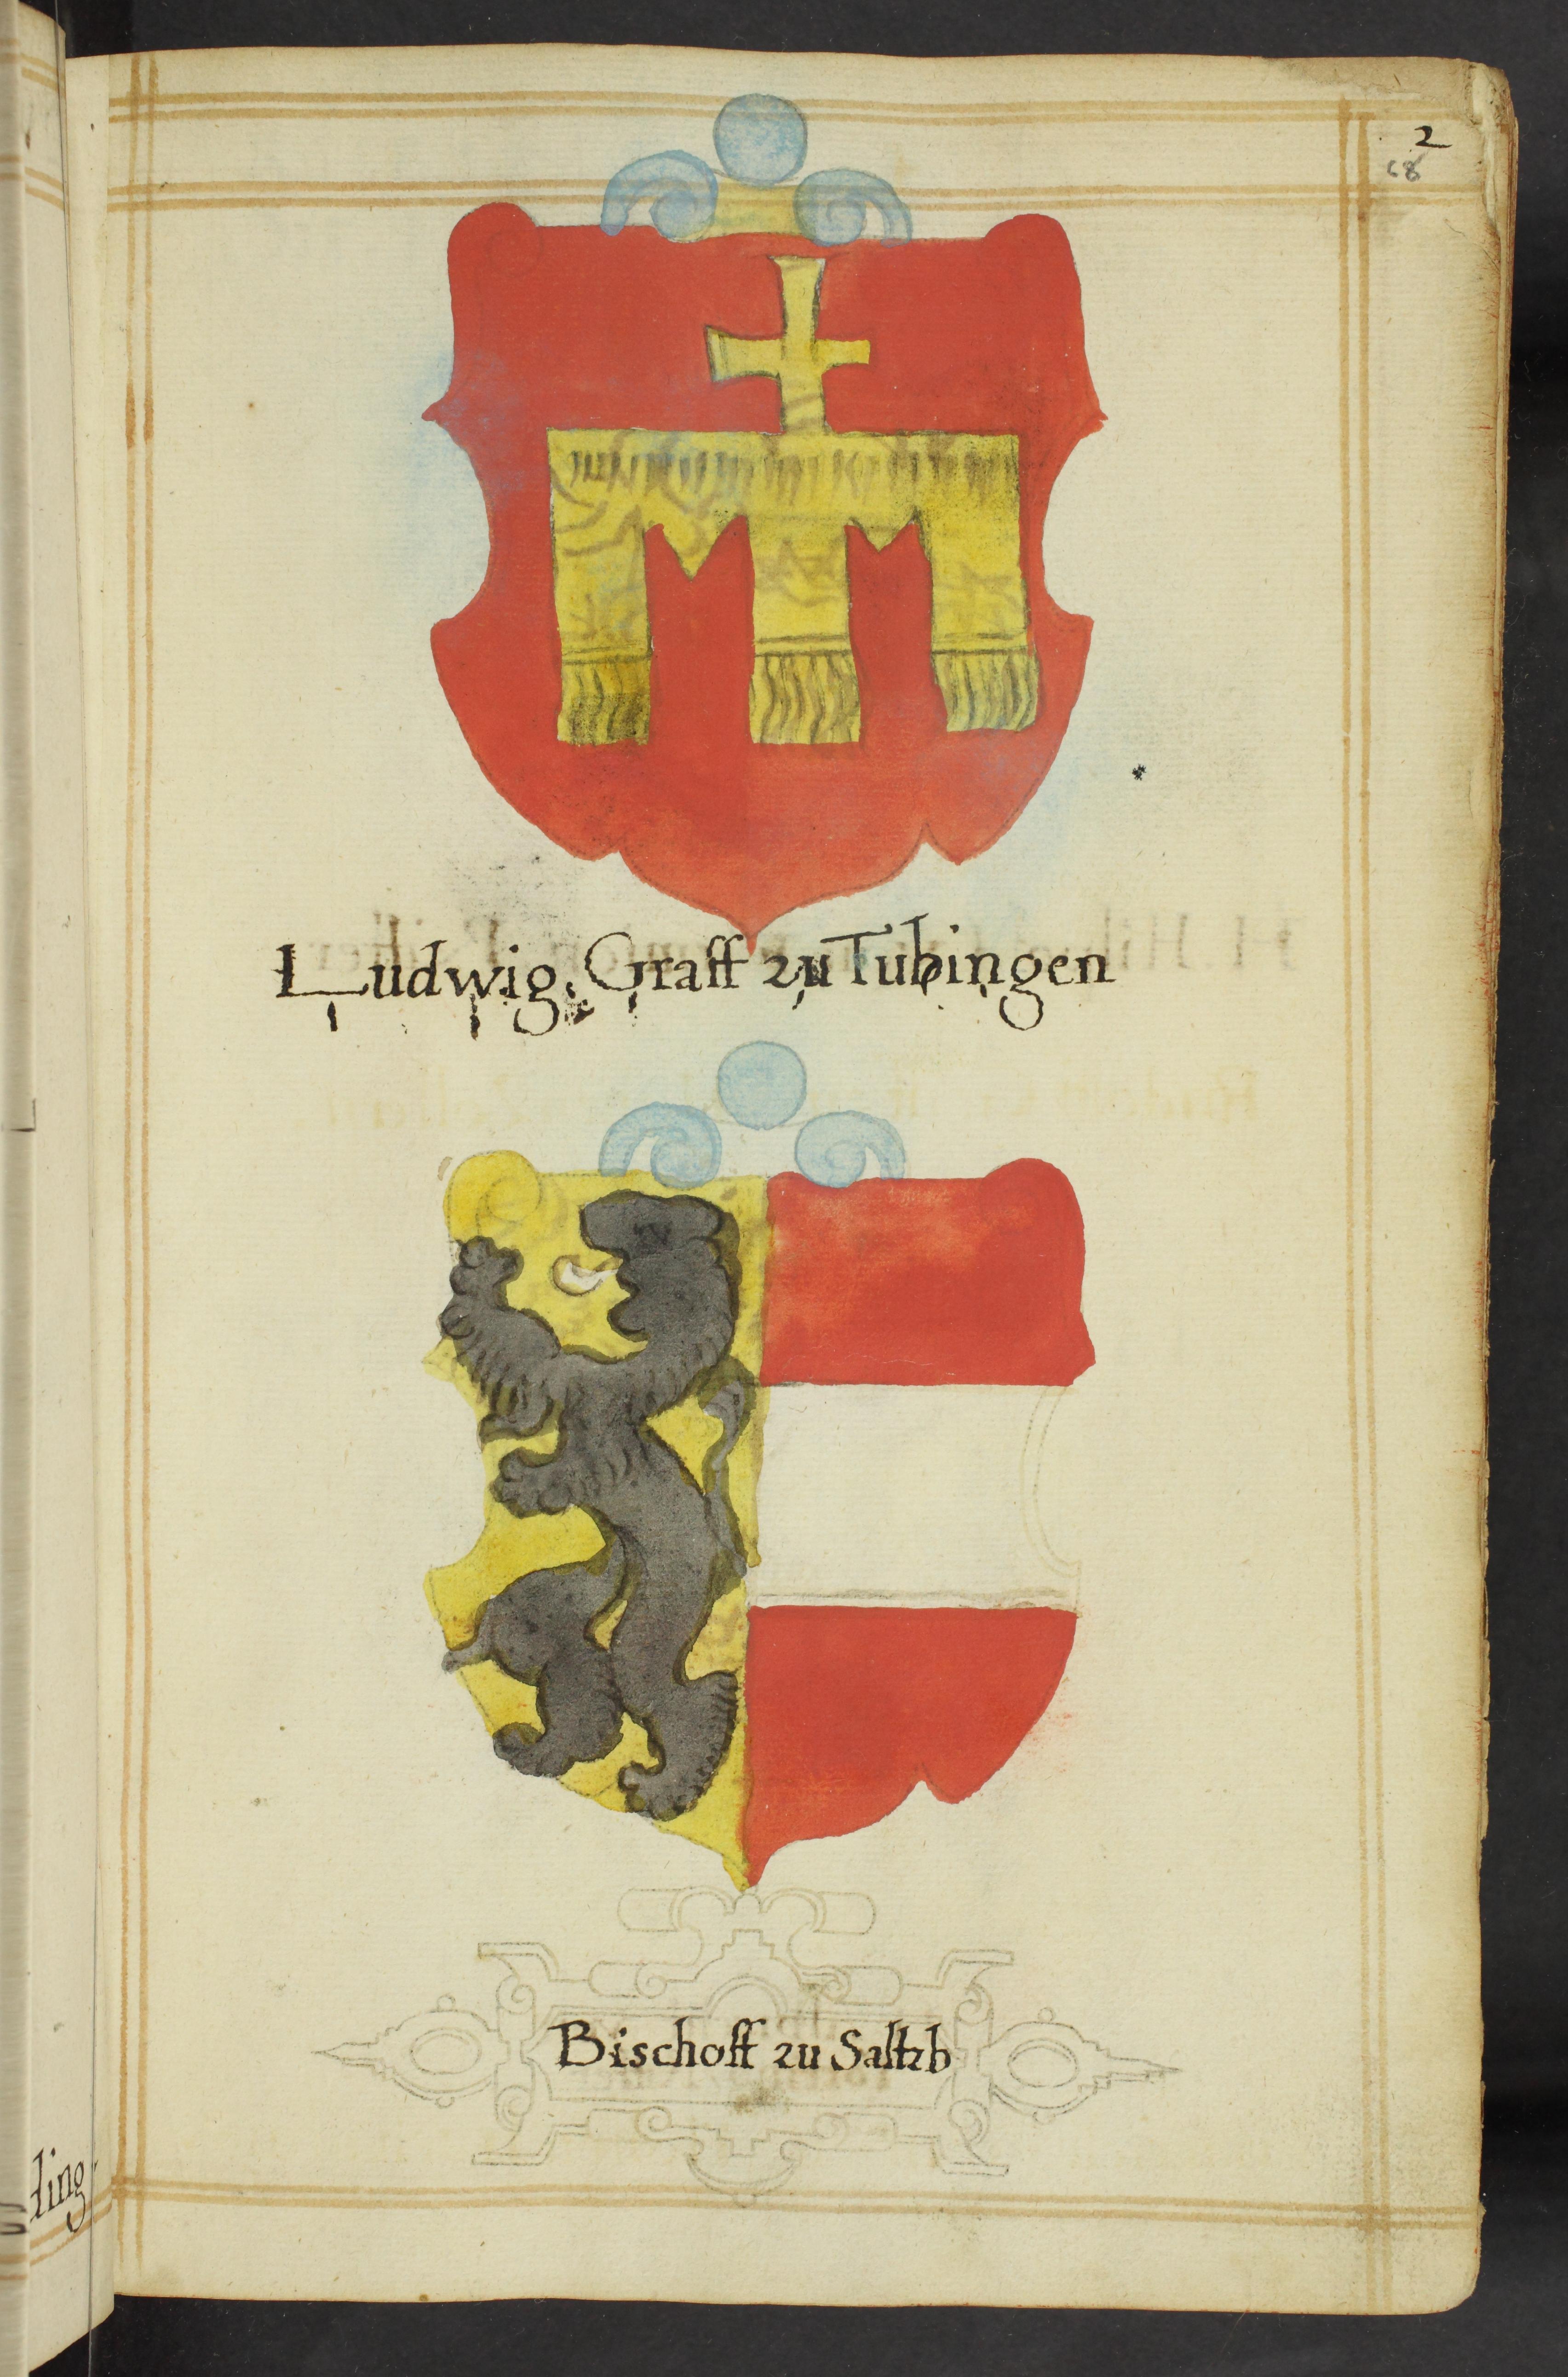 2
68
Ludwig, Graff zu Tubingen
Bischoff zu Saltzb
ling